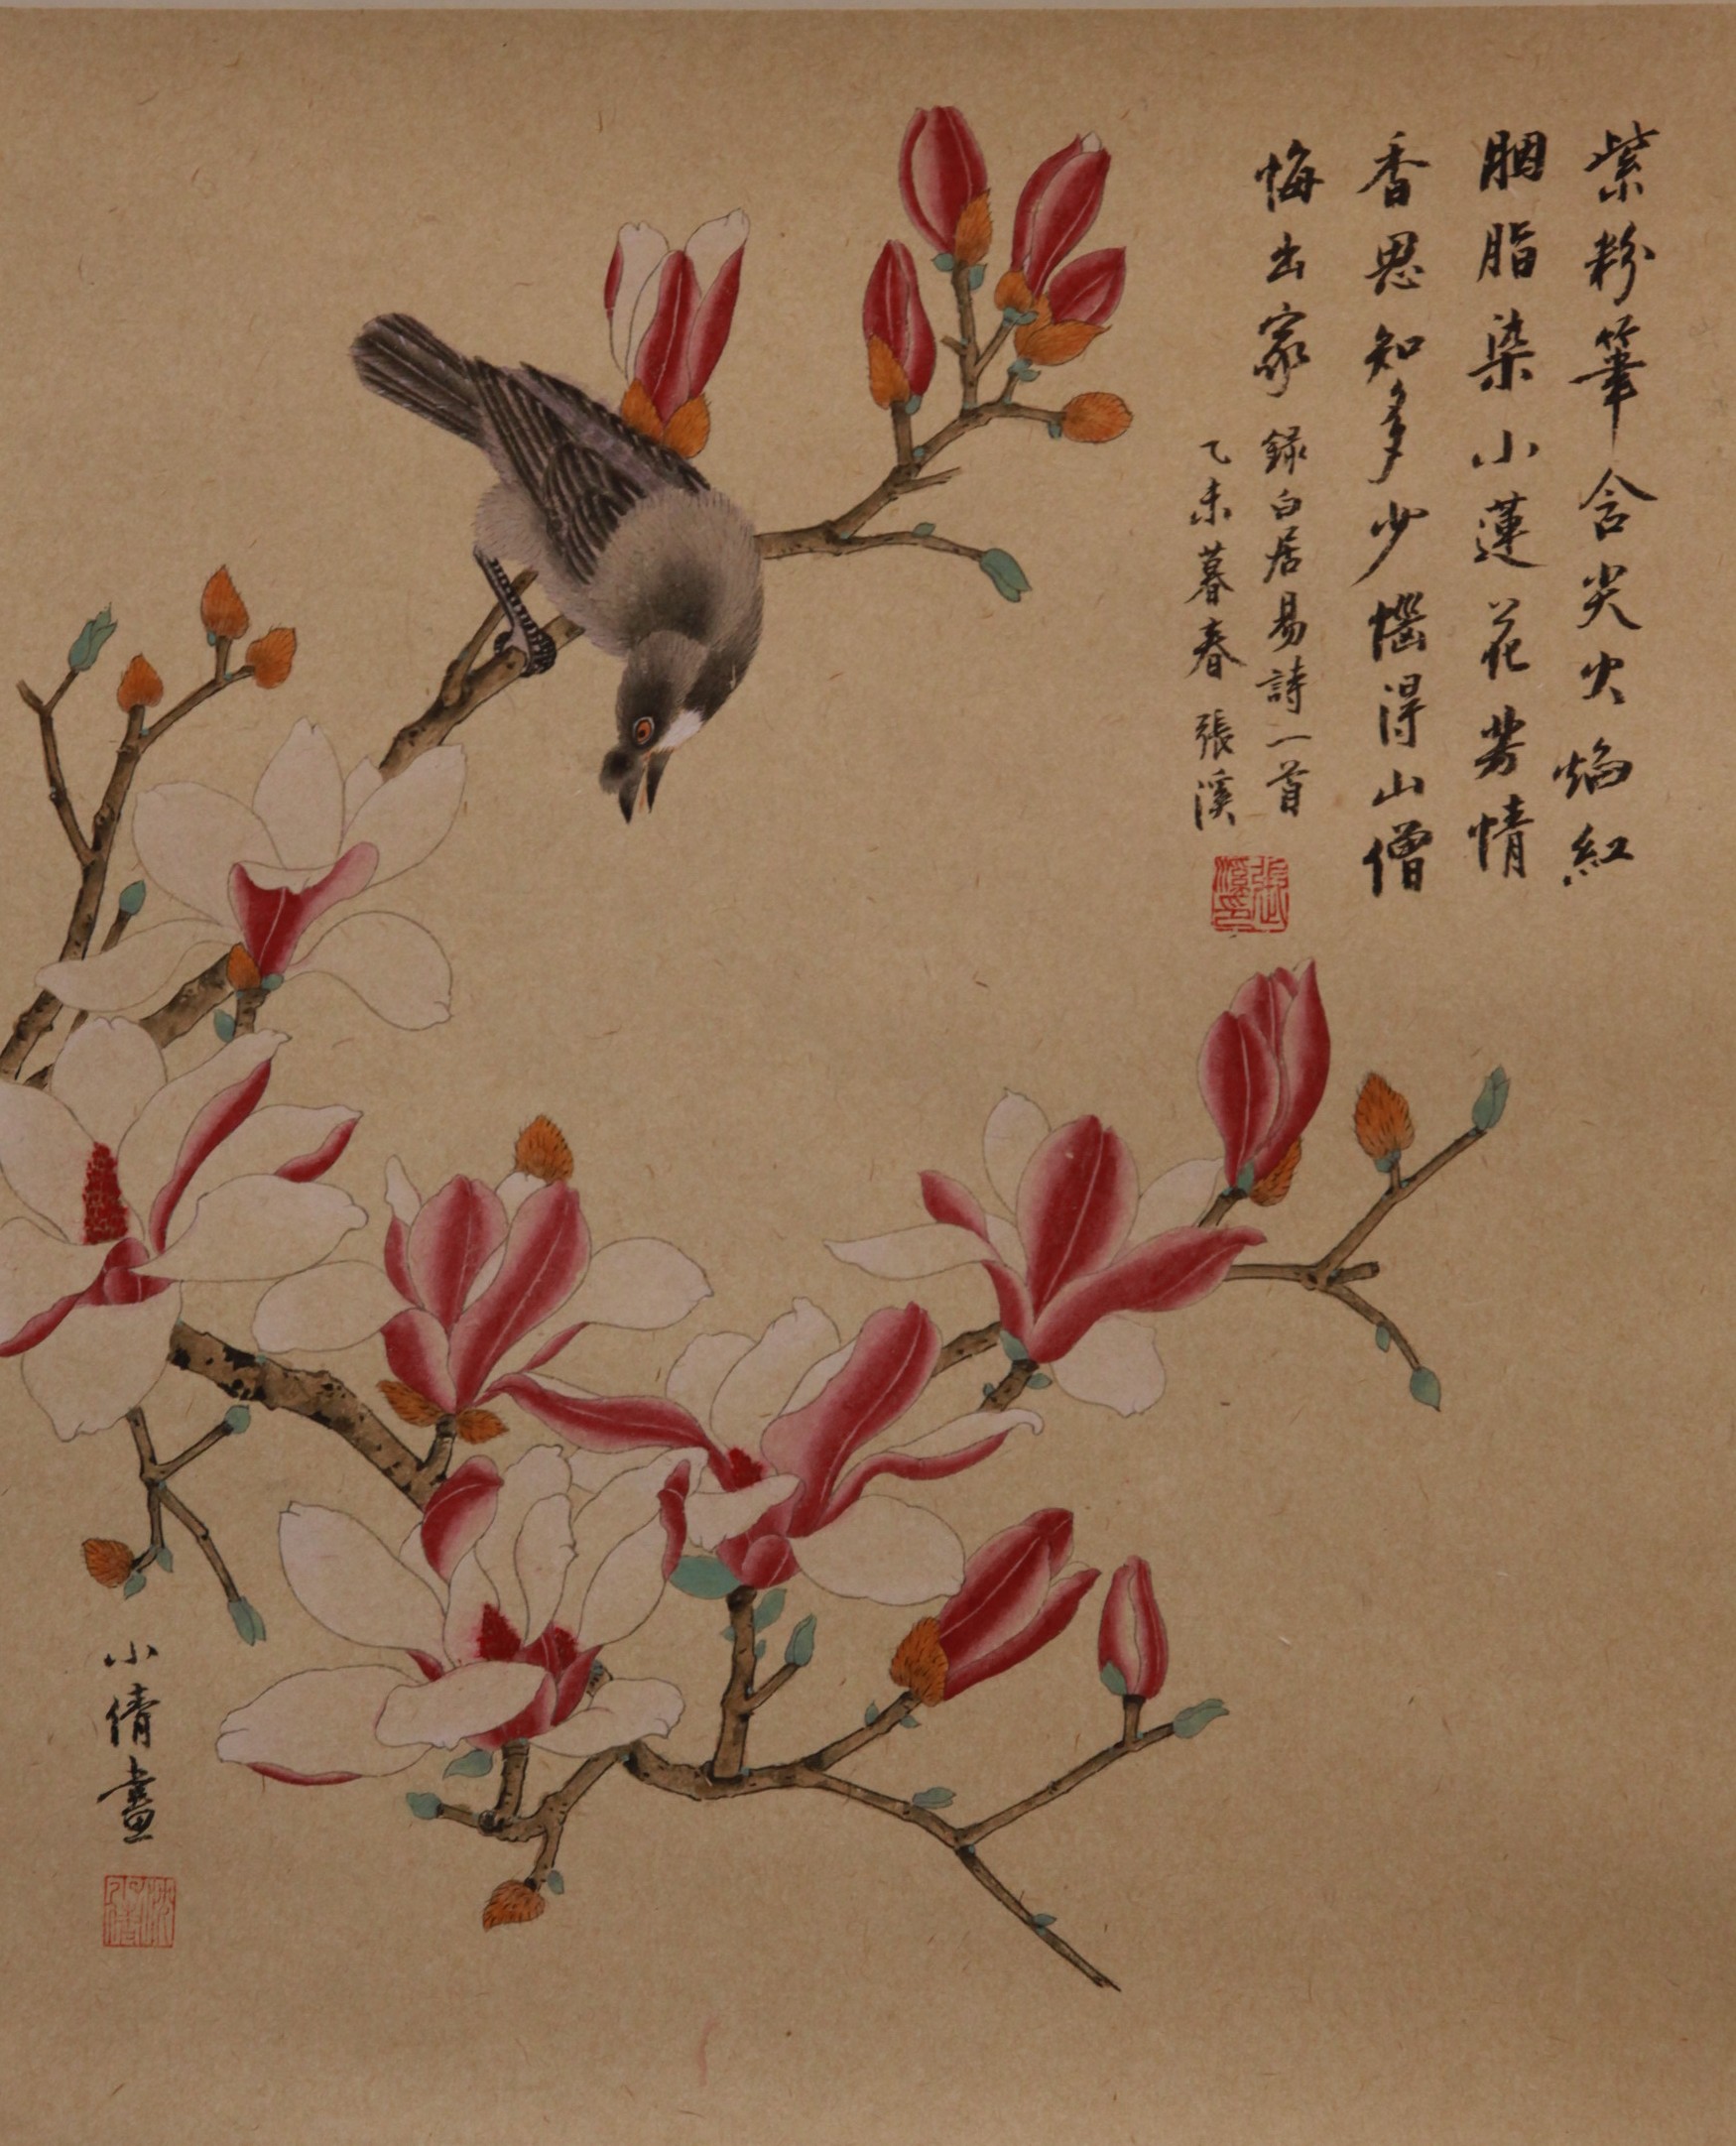 紫粉筆含尖火焰紅
胭脂染小蓮花芳情
香思知多少惱得山僧
悔出家 錄白居易詩一首
乙未暮春 張溪
張溪印
小倩畫